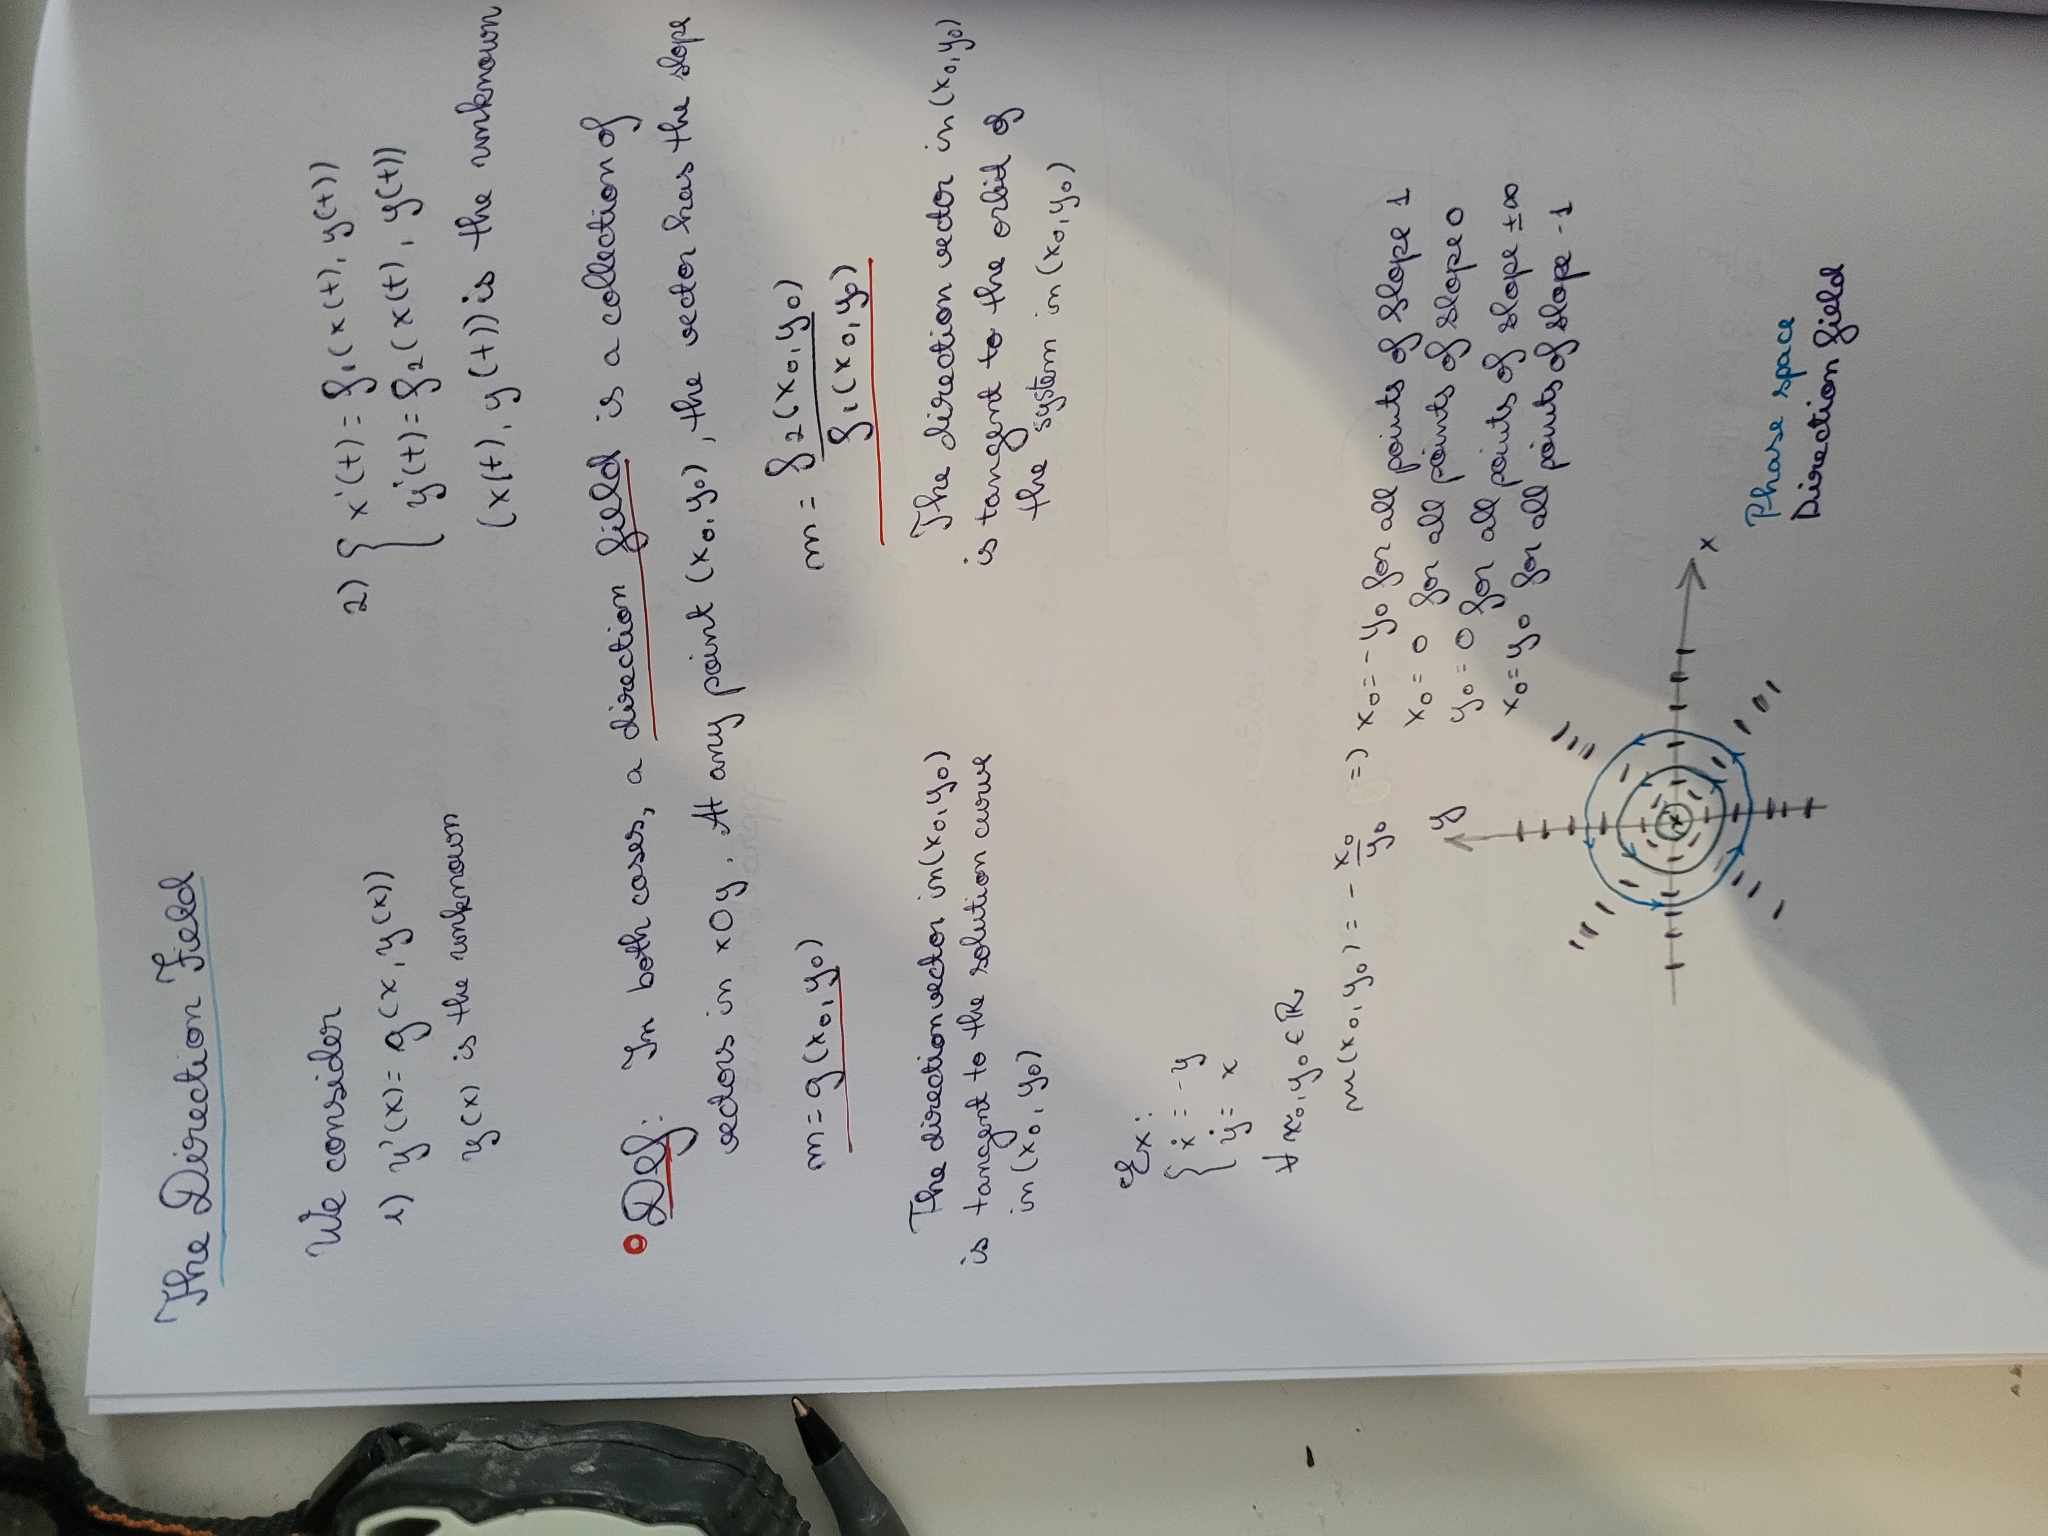 The Direction Field
We consider
1) y'(x) = g(x, y(x))
y(x) is the unknown
2) { x'(t) = f₁(x(t), y(t))
y'(t) = f₂(x(t), y(t))
(x(t), y(t)) is the unknown
Def: In both cases, a direction field is a collection of
vectors in xOy. At any point (x₀, y₀), the vector has the slope
m = g(x₀, y₀)
m = f₂(x₀, y₀) / f₁(x₀, y₀)
The direction vector in (x₀, y₀)
is tangent to the solution curve
in (x₀, y₀)
The direction vector in (x₀, y₀)
is tangent to the orbit of
the system in (x₀, y₀)
Ex:
{ ẋ = -y
ẏ = x
∀ x₀, y₀ ∈ ℝ
m(x₀, y₀) = - x₀/y₀ => x₀ = -y₀ for all points of slope 1
x₀ = 0 for all points of slope 0
y₀ = 0 for all points of slope ±∞
x₀ = y₀ for all points of slope -1
y
x
Phase space
Direction field